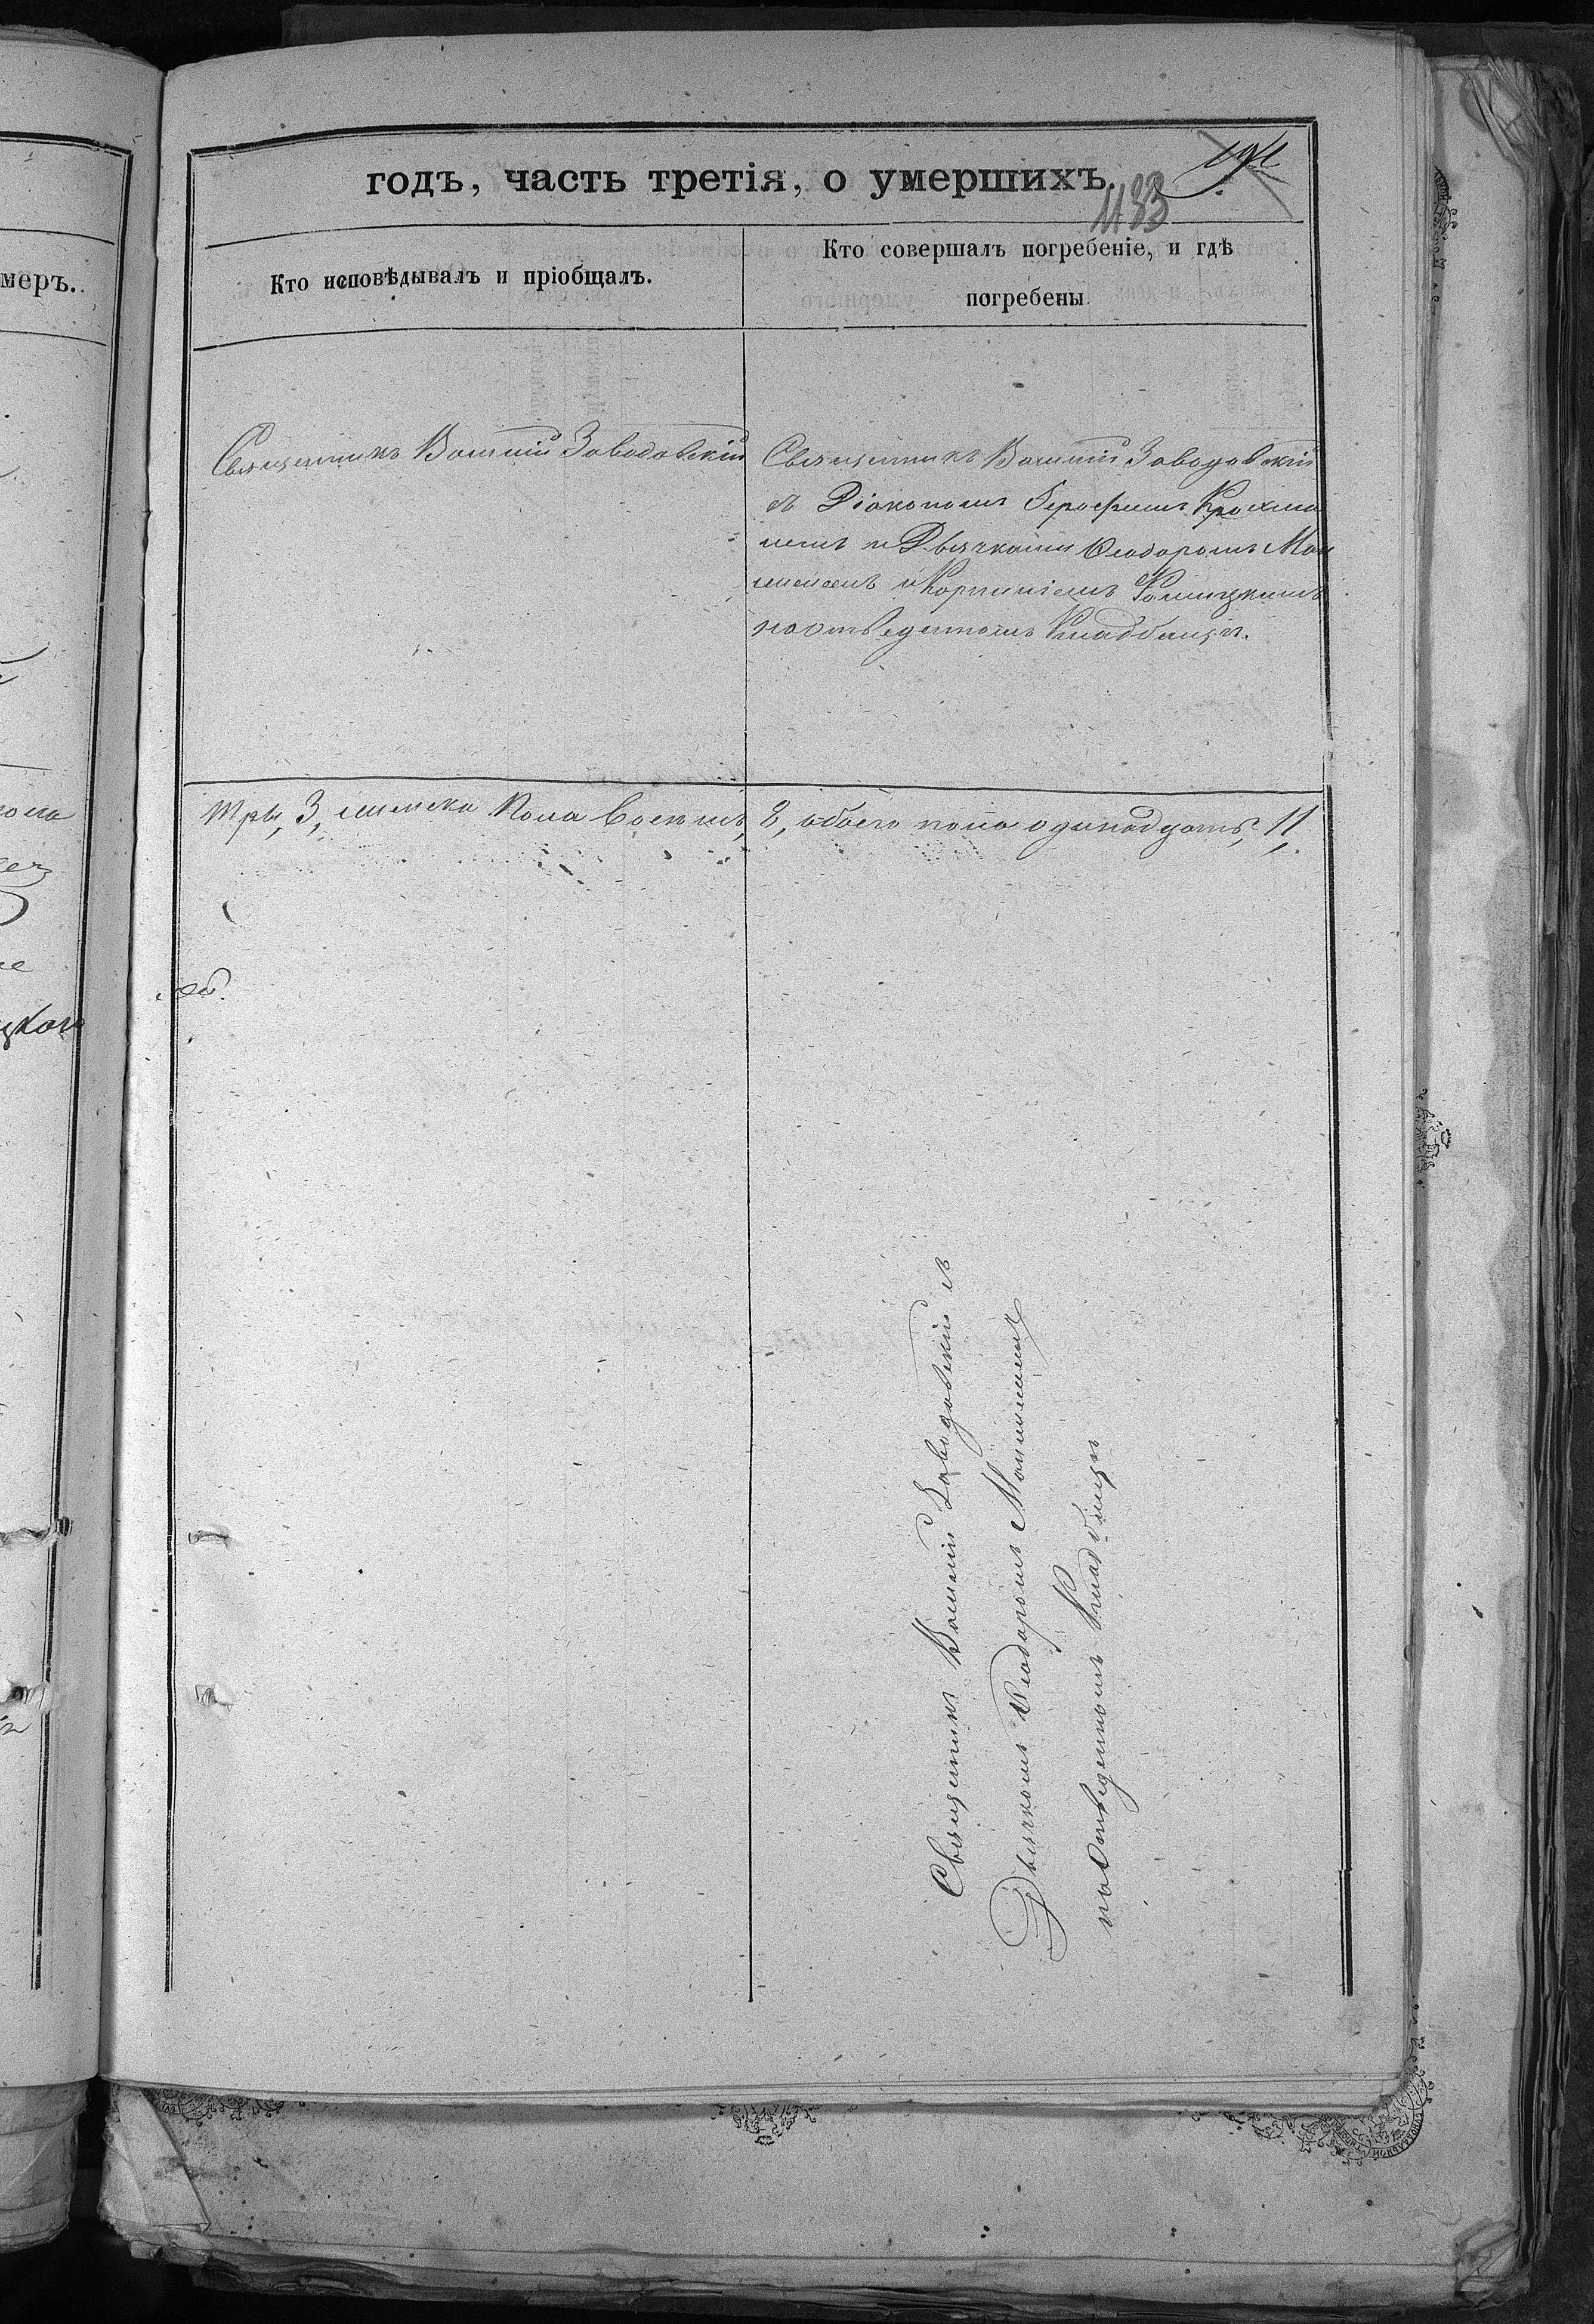 годъ, часть третія, о умершихъ.
1183
Кто исповѣдывалъ и пріобщалъ.
Кто совершалъ погребеніе, и гдѣ
погребены
меръ.
Священникъ Василій Заводовскій
Священникъ Василій Заводовскій
съ Діакономъ
и Дьячками Ѳеодоромъ
и Корниліемъ
на отведенномъ Кладбищѣ.
три, 3, женска пола восемь, 8, обоего пола одинадцать, 11,
цкого
Священникъ Василій Заводовскій съ
Дьячкомъ Ѳеодоромъ
на Отведенномъ Кладбищѣ